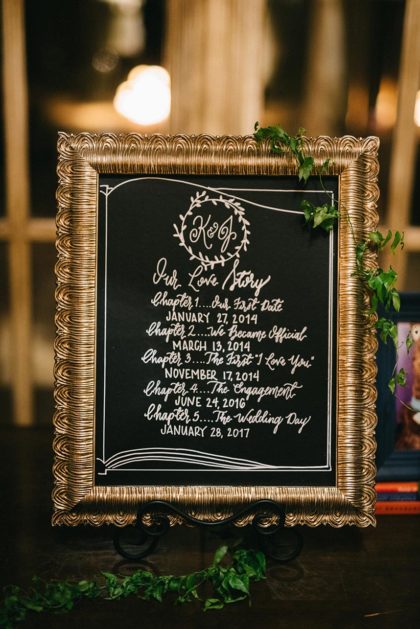 K & J
Our Love Story
Chapter 1....Our First Date
JANUARY 27, 2014
Chapter 2....We Became Official
MARCH 13, 2014
Chapter 3....The First "I Love You"
NOVEMBER 17, 2014
Chapter 4....The Engagement
JUNE 24, 2016
Chapter 5....The Wedding Day
JANUARY 28, 2017